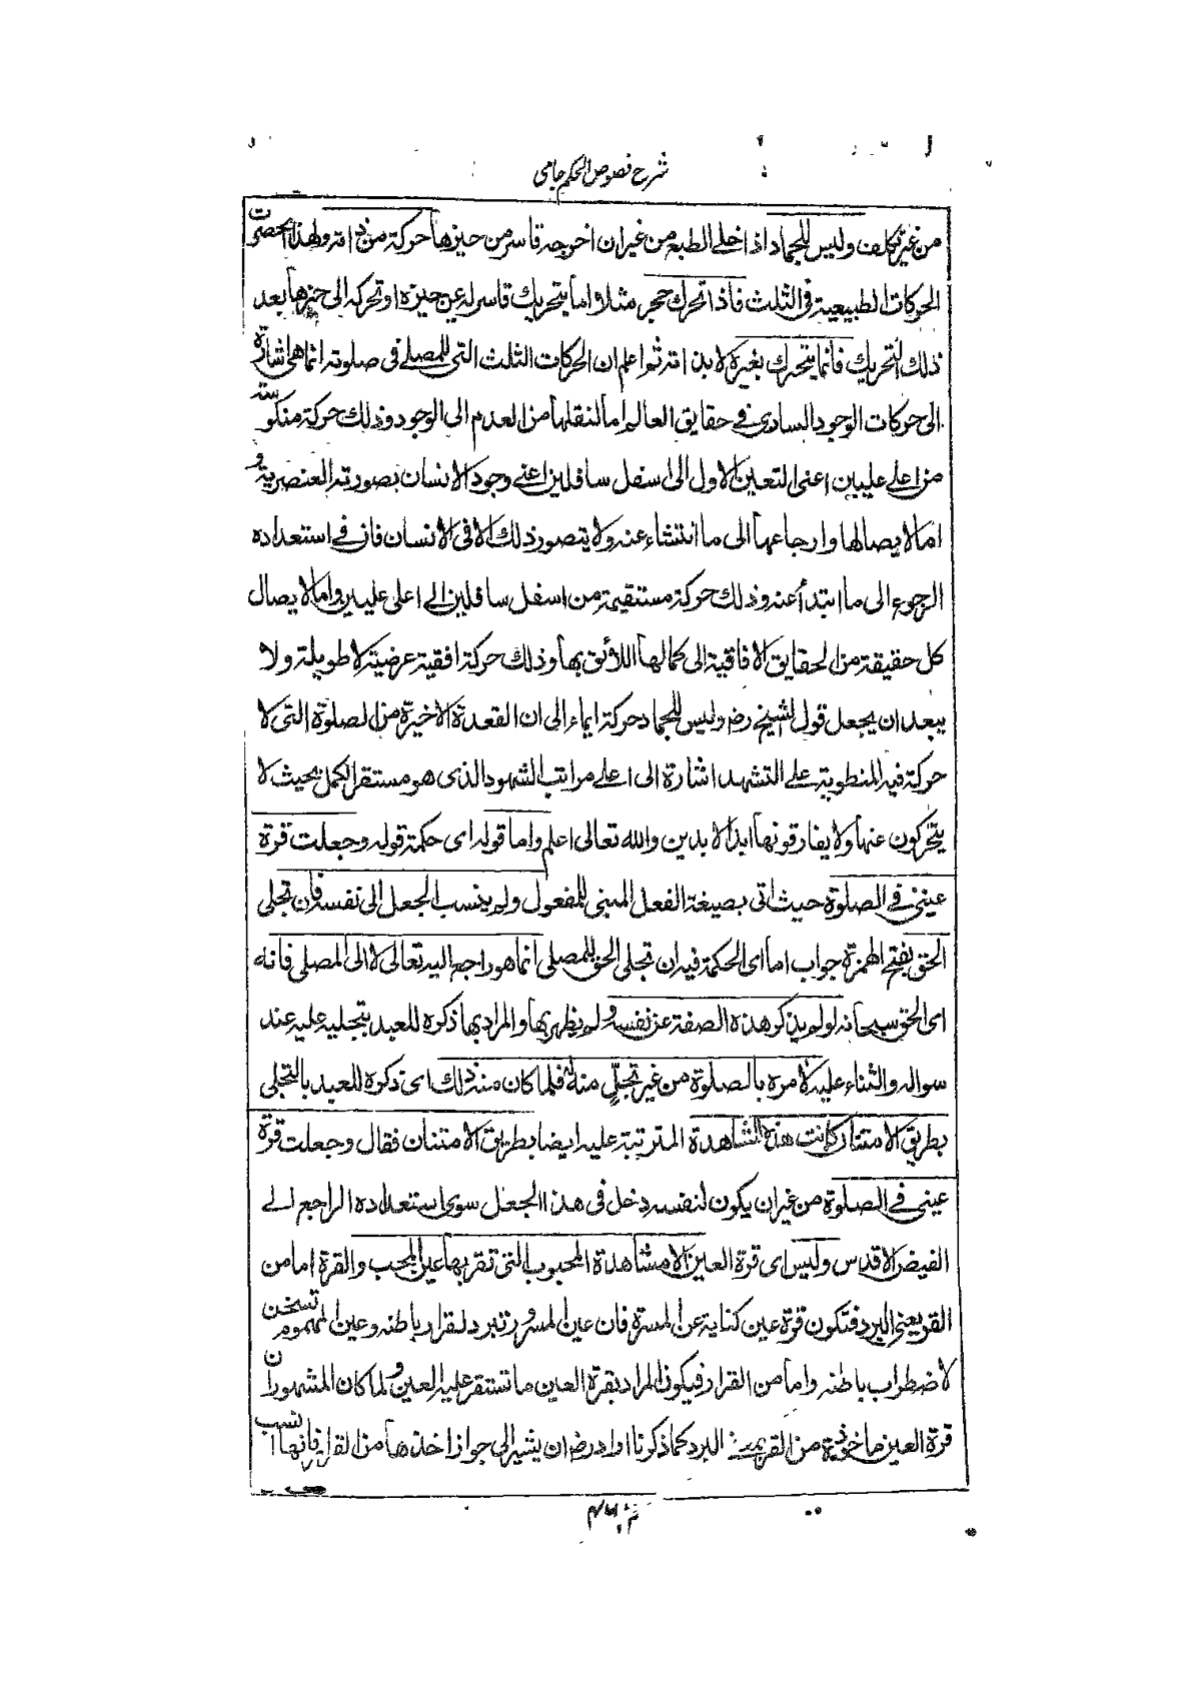 شرح فصوص الحكم جامی
من غير تكلف وليس للجماد اذا خلى الطبع من غير ان اخرجه قاسر من حيزها حركة من ذاته ولهذا انحصرت
الحركات الطبيعية فى الثلث فاذا تحرك حجر مثلا واما بتحريك قاسر له عن حيزه او تحركه الى حيزها بعد
ذلك التحريك فانما يتحرك بغيره لا بذاته ثم اعلم ان الحركات الثلث التى للمصلى فى صلوته انما هى اشارة
الى حركات الوجود السارى فى حقايق العالم اما لنقلها من العدم الى الوجود وذلك حركة منكوسة
من اعلى عليين اعنى التعين الاول الى اسفل سافلين اعنى وجود الانسان بصورته العنصرية و
اما لايصالها وارجاعها الى ما انتشاء عنه ولا يتصور ذلك الا فى الانسان فان فى استعداده
الرجوع الى ما ابتدأ عنه وذلك حركة مستقيمة من اسفل سافلين الى اعلى عليين واما لايصال
كل حقيقة من الحقايق الافاقية الى كمالها اللائق بها وذلك حركة افقية عرضية لا طويلة ولا
يبعد ان يجعل قول الشيخ رض وليس للجماد حركة ايماء الى ان القعدة الاخيرة من الصلوة التى لا
حركة فيه المنطوية على التشهد اشارة الى اعلى مراتب الشهود الذى هو مستقر الكمل بحيث لا
يتحركون عنها ولا يفارقونها ابد الابدين والله تعالى اعلم واما قوله اى حكمة قوله وجعلت قرة
عينى فى الصلوة حيث اتى بصيغة الفعل المبنى للمفعول ولم ينسب الجعل الى نفسه فان تجلى
الحق بفتح الهمزة جواب اما اى الحكمة فيه ان تجلى الحق للمصلى انما هو راجع اليه تعالى لا الى المصلى فانه
اى الحق سبحانه لو لم يذكر هذه الصفة عن نفسه و لم يظهر بها والمراد بها ذكره للعبد بتجليه عليه عند
سواله والثناء عليه لامره بالصلوة من غير تجلٍّ منه له فلما كان منه ذلك اى ذكره للعبد بالتجلى
بطريق الامتنان كانت هذه المشاهدة المترتبة عليه ايضا بطريق الامتنان فقال وجعلت قرة
عينى فى الصلوة من غير ان يكون لنفسه دخل فى هذا الجعل سوى استعداده الراجع الى
الفيض الاقدس وليس اى قرة العين الا مشاهدة المحبوب التى تقر بها عين المحب والقرة اما من
القر يعنى البرد فتكون قرة عين كناية عن المسرة فان عين المسرور تبرد لقرار باطنه وعين المهموم تسخن
لاضطراب باطنه واما من القرار فيكون المراد بقرة العين ما تستقر عليه العين و لما كان المشهور ان
قرة العين ماخوذة من القر بمعنى البرد كما ذكرنا اراد رض ان يشير الى جواز اخذها من القرار فانها انسب